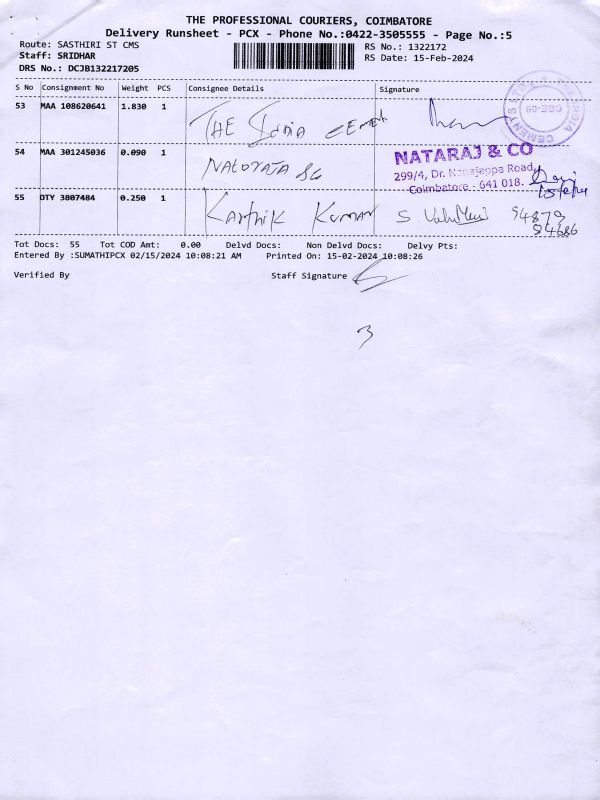 THE PROFESSIONAL COURIERS, COIMBATORE
Delivery Runsheet - PCX - Phone No.:0422-3505555 - Page No.:5
Route: SASTHIRI ST CMS
RS No.: 1322172
Staff: SRIDHAR
RS Date: 15-Feb-2024
DRS No.: DCJB132217205
S No Consignment No Weight PCS Consignee Details Signature
53 MAA 108620641 1.830 1 THE India cement
CEMENTS
CBE-09
54 MAA 301245036 0.090 1
NATARAJ & CO
299/4, Dr. Nanajappa Road,
Coimbatore - 641 018.
55 OTY 3807484 0.250 1 Karthik Kumar S. 94879
94686
Tot Docs: 55 Tot COD Amt: 0.00 Delvd Docs: Non Delvd Docs: Delvy Pts:
Entered By :SUMATHIPCX 02/15/2024 10:08:21 AM Printed On: 15-02-2024 10:08:26
Verified By Staff Signature
3